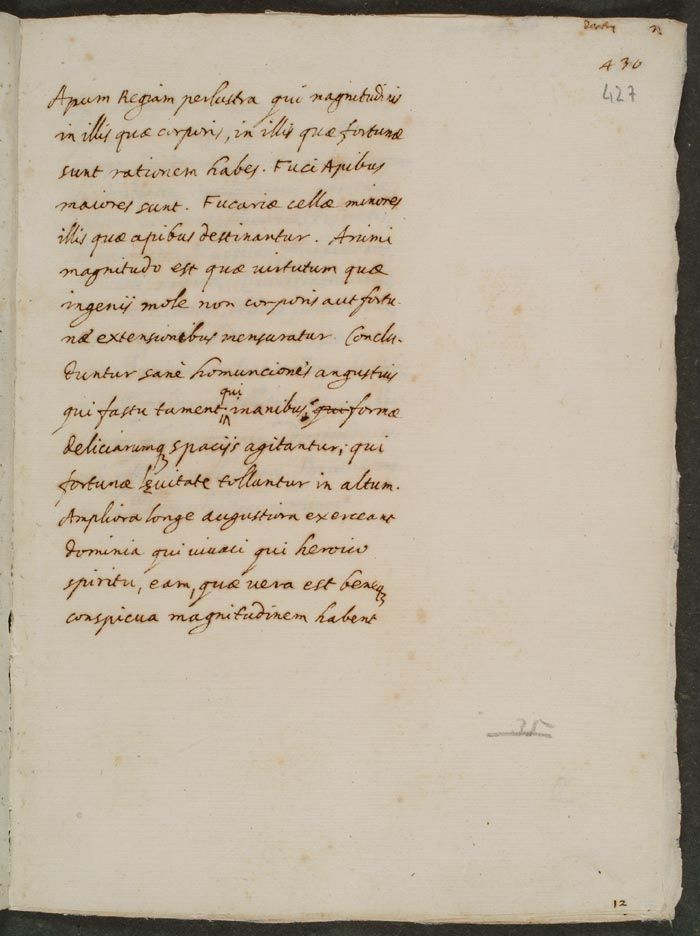 430
427
Apum Regiam perlustra qui magnitudinis
in illis quæ corporis, in illis quæ fortunæ
sunt rationem habes. Fuci Apibus
maiores sunt. Fucariæ cellæ minores
illis quæ apibus destinantur. Animi
magnitudo est quæ uirtutum quæ
ingenij mole non corporis aut fortu-
næ extensionibus mensuratur. Conclu-
duntur sanè homunciones angustijs
qui fastu tument qui inanibus, qui formæ
deliciarumq spacijs agitantur; qui
fortunæ leuitate tolluntur in altum.
Ampliora longe augustiora exerceant
dominia qui uiuaci qui heroico
spiritu, eam, quæ uera est beneq
conspicua magnitudinem habent
35
12